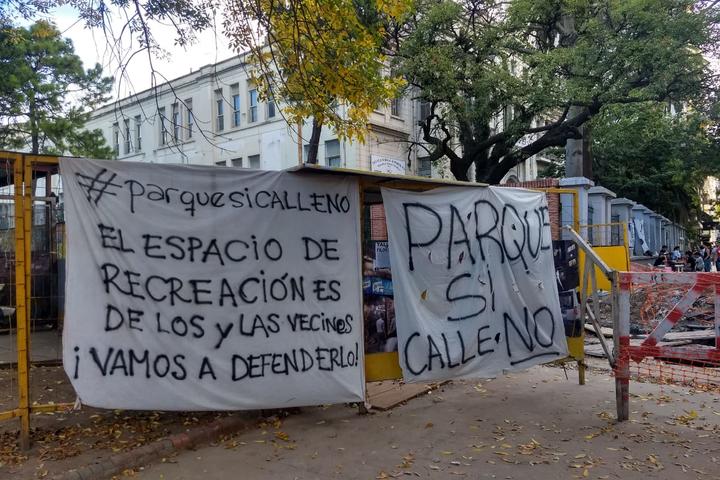 #parquesiCALLENO
EL ESPACIO DE
RECREACIÓN ES
DE LOS Y LAS VECINOS
¡VAMOS A DEFENDERLO!
PARQUE
SI
CALLE NO